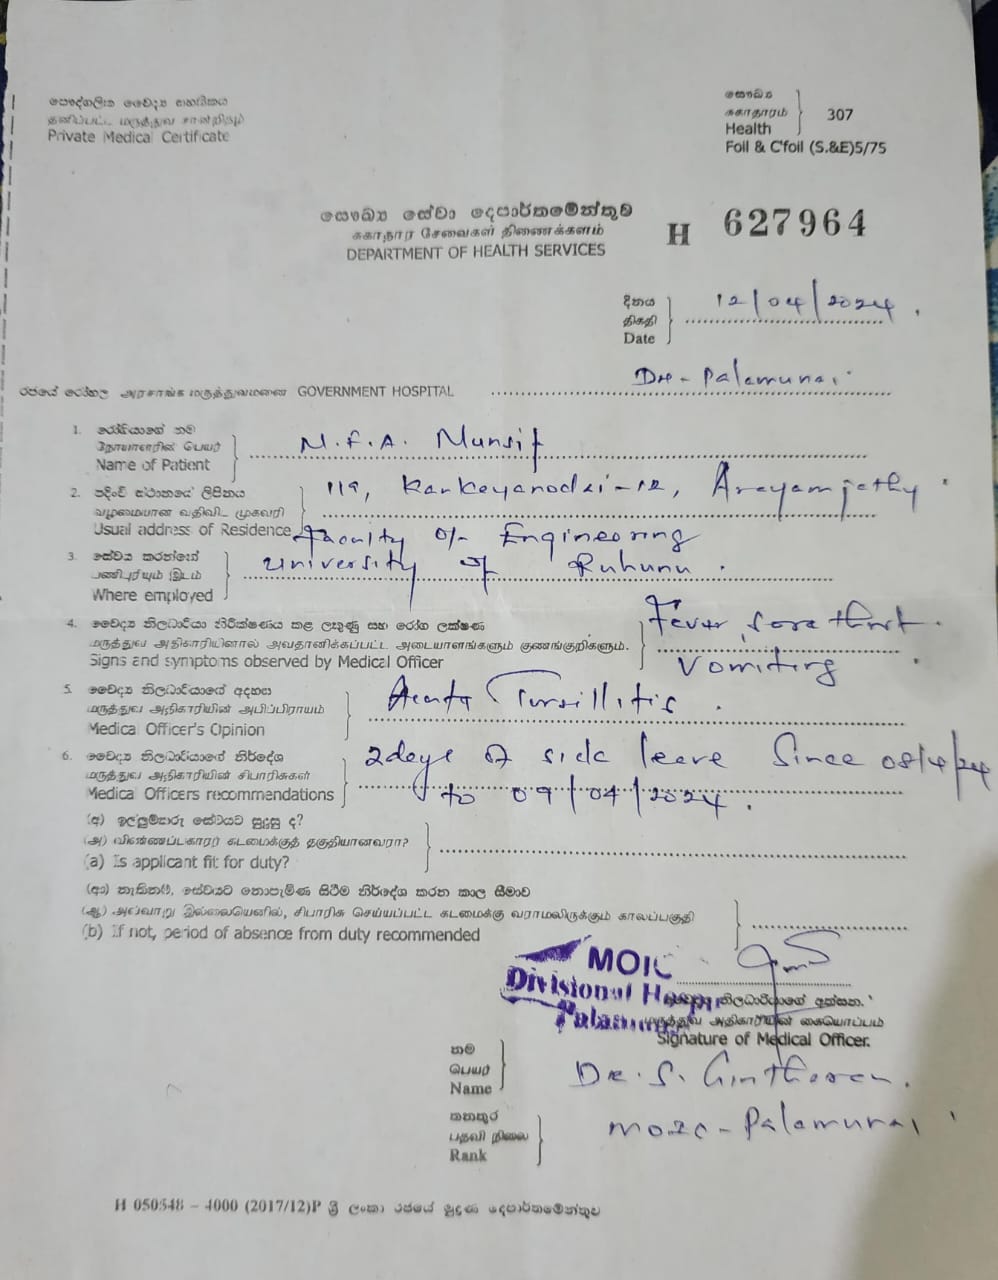 පෞද්ගලික වෛද්‍ය සහතිකය
தனிப்பட்ட மருத்துவ சான்றிதழ்
Private Medical Certificate
සෞඛ්‍ය
சுகாதாரம்
Health
307
Foil & C'foil (S.&E)5/75
සෞඛ්‍ය සේවා දෙපාර්තමේන්තුව
சுகாதார சேவைகள் திணைக்களம்
DEPARTMENT OF HEALTH SERVICES
H 627964
දිනය
திகதி
Date
12/04/2024.
රජයේ රෝහල அரசாங்க மருத்துவமனை GOVERNMENT HOSPITAL DH - Palamunai
1. රෝගියාගේ නම
நோயாளரின் பெயர்
Name of Patient
M.F.A. Munsif
2. පදිංචි ස්ථානයේ ලිපිනය
வழமையான வதிவிட முகவரி
Usual address of Residence
119, Kankeyanodai-12, Arayampathy
3. සේවය කරන්නේ
பணிபுரியும் இடம்
Where employed
Faculty of Engineering
University of Ruhunu.
4. වෛද්‍ය නිලධාරියා නිරීක්ෂණය කළ ලකුණු සහ රෝග ලක්ෂණ
மருத்துவ அதிகாரியினால் அவதானிக்கப்பட்ட அடையாளங்களும் குணங்குறிகளும்.
Signs and symptoms observed by Medical Officer
Fever, sore throt.
Vomiting
5. වෛද්‍ය නිලධාරියාගේ අදහස
மருத்துவ அதிகாரியின் அபிப்பிராயம்
Medical Officer's Opinion
Acute Tonsillitis.
6. වෛද්‍ය නිලධාරියාගේ නිර්දේශ
மருத்துவ அதிகாரியின் சிபாரிசுகள்
Medical Officers recommendations
2days of sick leave Since 08/4/24
to 09/04/2024.
(අ) ඉල්ලුම්කරු සේවයට සුදුසු ද?
(அ) விண்ணப்பகாரர் கடமைக்குத் தகுதியானவரா?
(a) Is applicant fit for duty?
(ආ) නැතිනම්, සේවයට නොපැමිණ සිටීම නිර්දේශ කරන කාල සීමාව
(ஆ) அவ்வாறு இல்லையெனில், சிபாரிசு செய்யப்பட்ட கடமைக்கு வராமலிருக்கும் காலப்பகுதி
(b) If not, period of absence from duty recommended
MOIC
Divisional
Palamunai
වෛද්‍ය නිලධාරියාගේ අත්සන.
மருத்துவ அதிகாரியின் கையொப்பம்
Signature of Medical Officer.
නම
பெயர்
Name
DR. S.
තනතුර
பதவி நிலை
Rank
MOIC - Palamunai
H 050548 – 4000 (2017/12)P ශ්‍රී ලංකා රජයේ මුද්‍රණ දෙපාර්තමේන්තුව